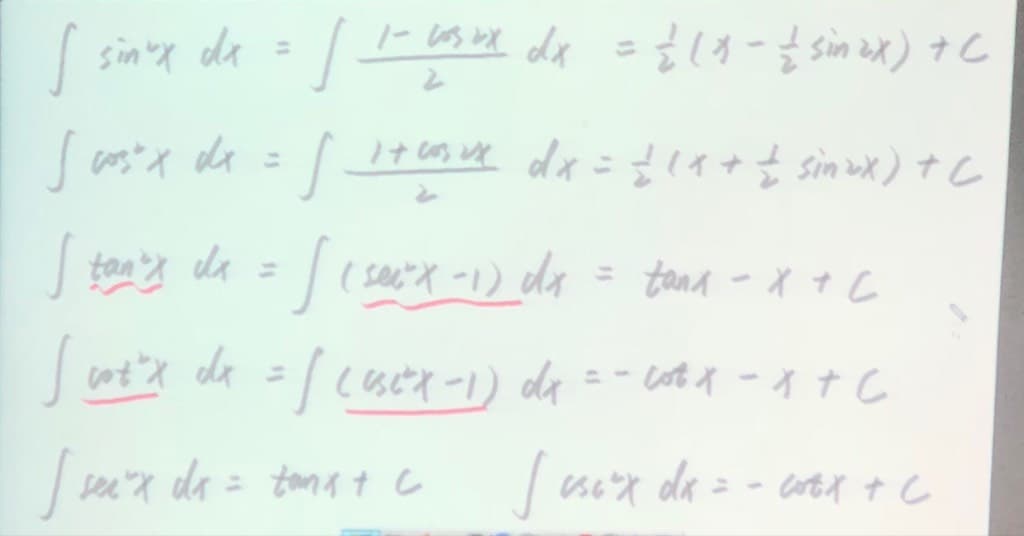 ∫ sin²x dx = ∫ (1 - cos 2x)/2 dx = 1/2 (x - 1/2 sin 2x) + C
∫ cos²x dx = ∫ (1 + cos 2x)/2 dx = 1/2 (x + 1/2 sin 2x) + C
∫ tan²x dx = ∫ (sec²x - 1) dx = tan x - x + C
∫ cot²x dx = ∫ (csc²x - 1) dx = - cot x - x + C
∫ sec²x dx = tan x + C ∫ csc²x dx = - cot x + C